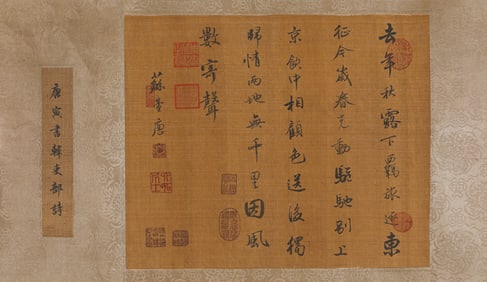 去年秋露下羈旅逐東
征今歲春光動驅馳别上
京飲中相顧色送後獨
歸情兩地無千里因風
數寄聲
蘇臺唐寅
唐寅書韓吏部詩